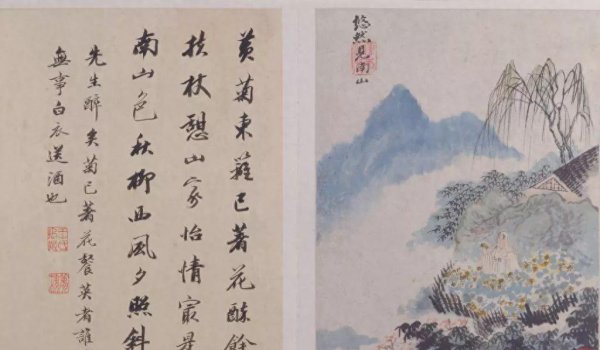 悠然見南山
黃菊東籬已著花酣餘
扶杖憩山家怡情㝡是
南山色秋柳西風夕照斜
先生醉矣菊已著花餐英者誰
無事白衣送酒也